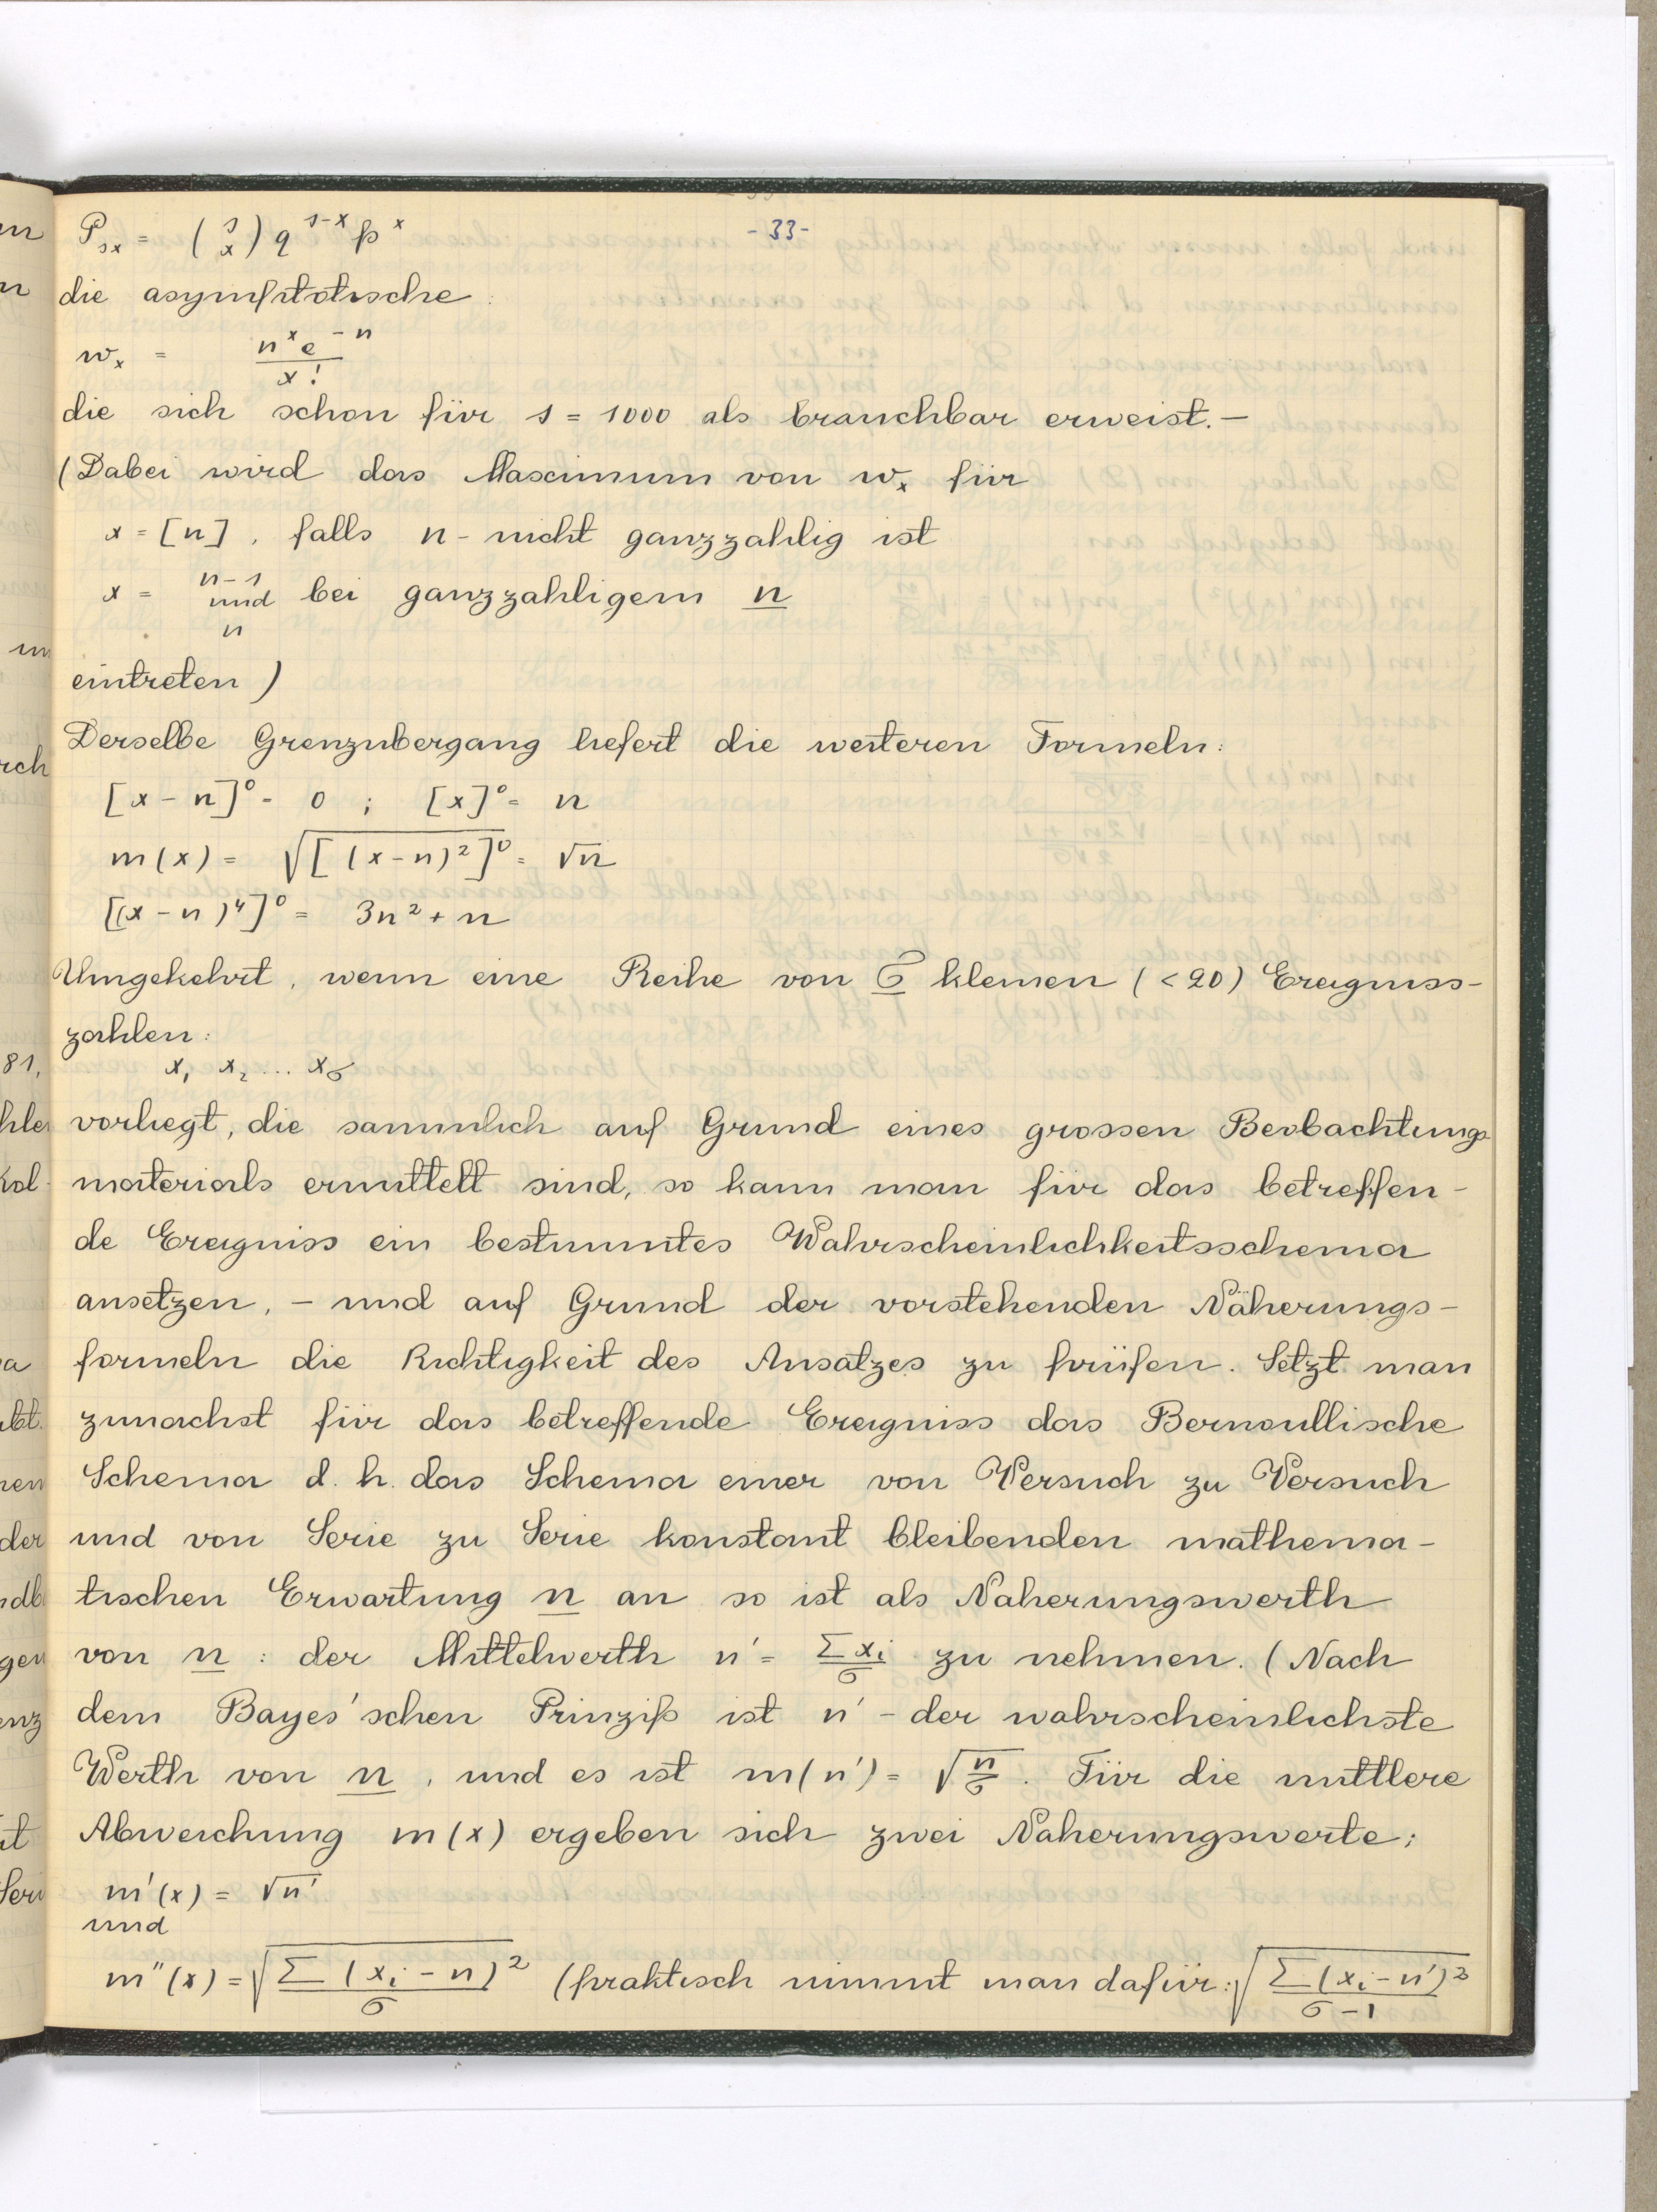 - 33 -
P_sx = (s x) q^{s-x} p^x
die asymptotische :
w_x = n^x e^{-n} / x!
die sich schon für s = 1000 als brauchbar erweist. –
(Dabei wird das Maximum von w_x für
x = [n], falls n - nicht ganzzahlig ist
x = n-1 und n bei ganzzahligem n
eintreten )
Derselbe Grenzubergang liefert die weiteren Formeln:
[x - n]^0 = 0 ; [x]^0 = n
m(x) = √[(x-n)²]^0 = √n
[(x-n)⁴]^0 = 3n² + n
Umgekehrt, wenn eine Reihe von σ kleinen (<20) Ereigniss-
zahlen:
x₁ x₂ ... x_σ
vorliegt, die sammlich auf Grund eines grossen Beobachtungs
materials ermittelt sind, so kann man für das betreffen-
de Ereigniss ein bestimmtes Wahrscheinlichkeitsschema
ansetzen, – und auf Grund der vorstehenden Näherungs-
formeln die Richtigkeit des Ansatzes zu prüfen. Setzt man
zunachst für das betreffende Ereigniss das Bernoullische
Schema d. h. das Schema einer von Versuch zu Versuch
und von Serie zu Serie konstant bleibenden mathema-
tischen Erwartung n an so ist als Naherungswerth
von n : der Mittelwerth n' = Σx_i / σ zu nehmen. (Nach
dem Bayes'schen Prinzip ist n' - der wahrscheinlichste
Werth von n, und es ist m(n') = √(n/σ). Für die mittlere
Abweichung m(x) ergeben sich zwei Naherungswerte;
m'(x) = √n'
und
m''(x) = √(Σ(x_i - n)² / σ) (praktisch nimmt man dafür: √(Σ(x_i - n')² / (σ-1))